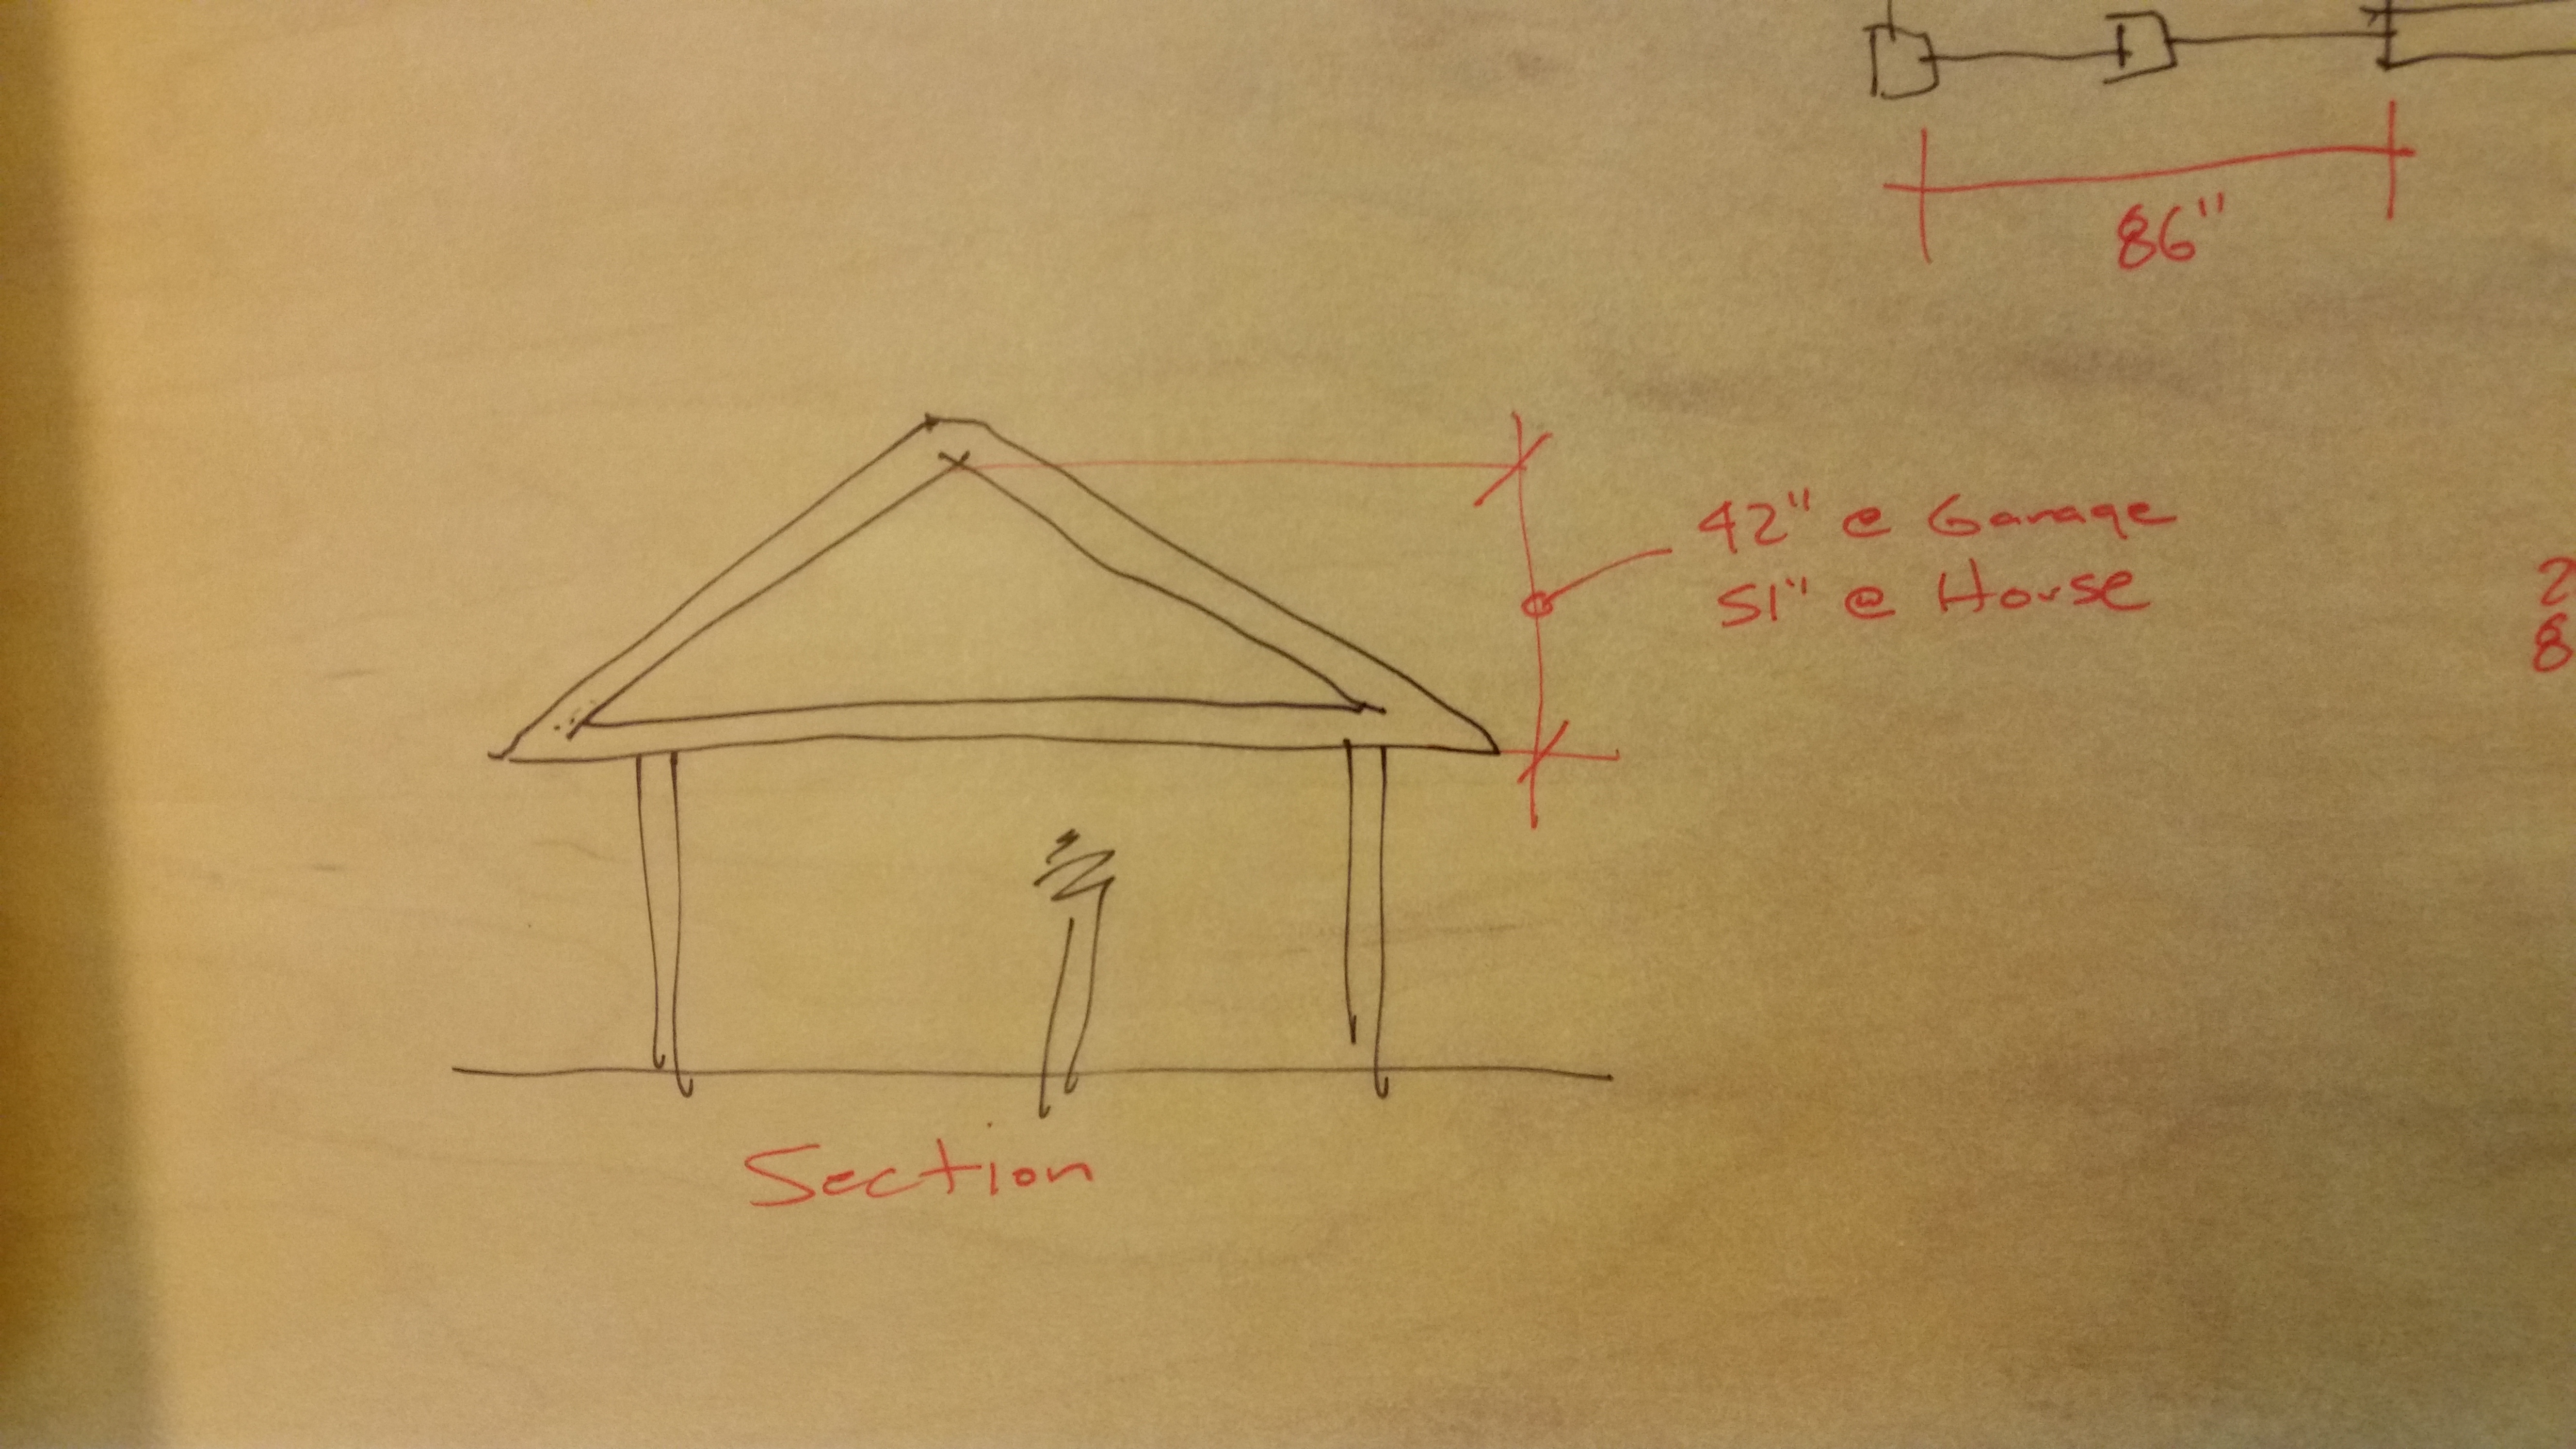 86"
42" @ Garage
51" @ House
2
8
Section